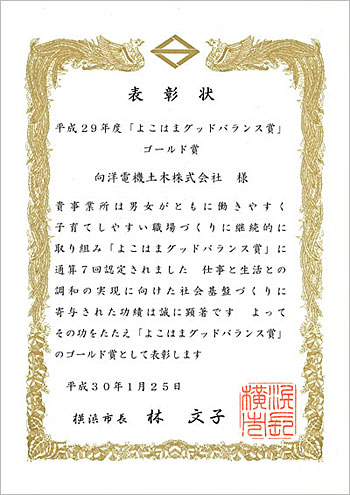 表彰状
平成29年度「よこはまグッドバランス賞」
ゴールド賞
向洋電機土木株式会社 様
貴事業所は男女がともに働きやすく
子育てしやすい職場づくりに継続的に
取り組み「よこはまグッドバランス賞」に
通算7回認定されました 仕事と生活との
調和の実現に向けた社会基盤づくりに
寄与された功績は誠に顕著です よって
その功をたたえ「よこはまグッドバランス賞」
のゴールド賞として表彰します
平成30年1月25日
横浜市長 林 文子